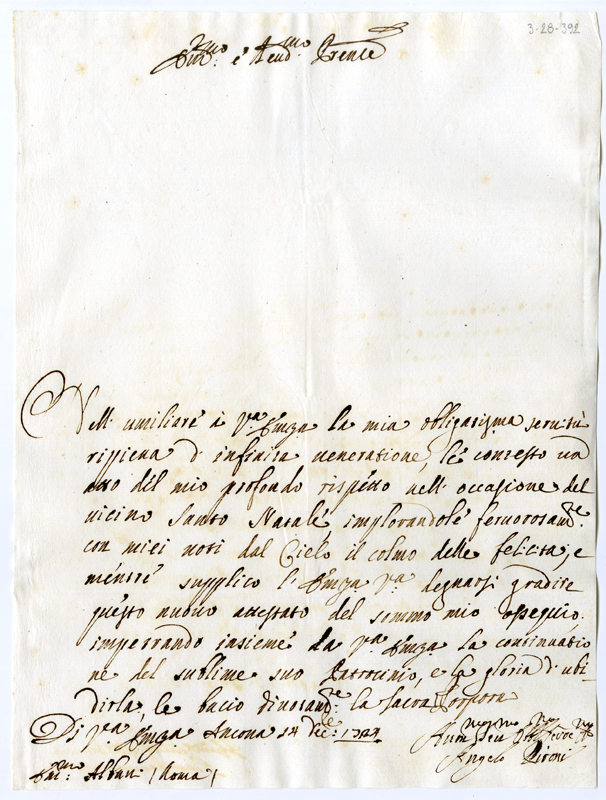 3-28-392
Em.mo e Reud.mo Prençe
Nell' umiliare à V.ra Emza la mia obligatissima seruitù
ripiena di infinita ueneratione, le contesto un
atto del mio profondo rispetto nell' occasione del
uicino Santo Natale implorandole feruorosam.te
con miei uoti dal Cielo il colmo delle felicità, e
mentre supplico l' Emza V.ra degnarsi gradire
questo nuouo attestato del sommo mio ossequio.
impetrando insieme da V.ra Emza la continuatio
ne del sublime suo Patrocinio, e la gloria d' ubi-
dirla, le bacio diuotam.te la sacra Porpora
Di V.ra Emza Ancona 14 Dec.
Angelo
Em.mo Albani (Roma)